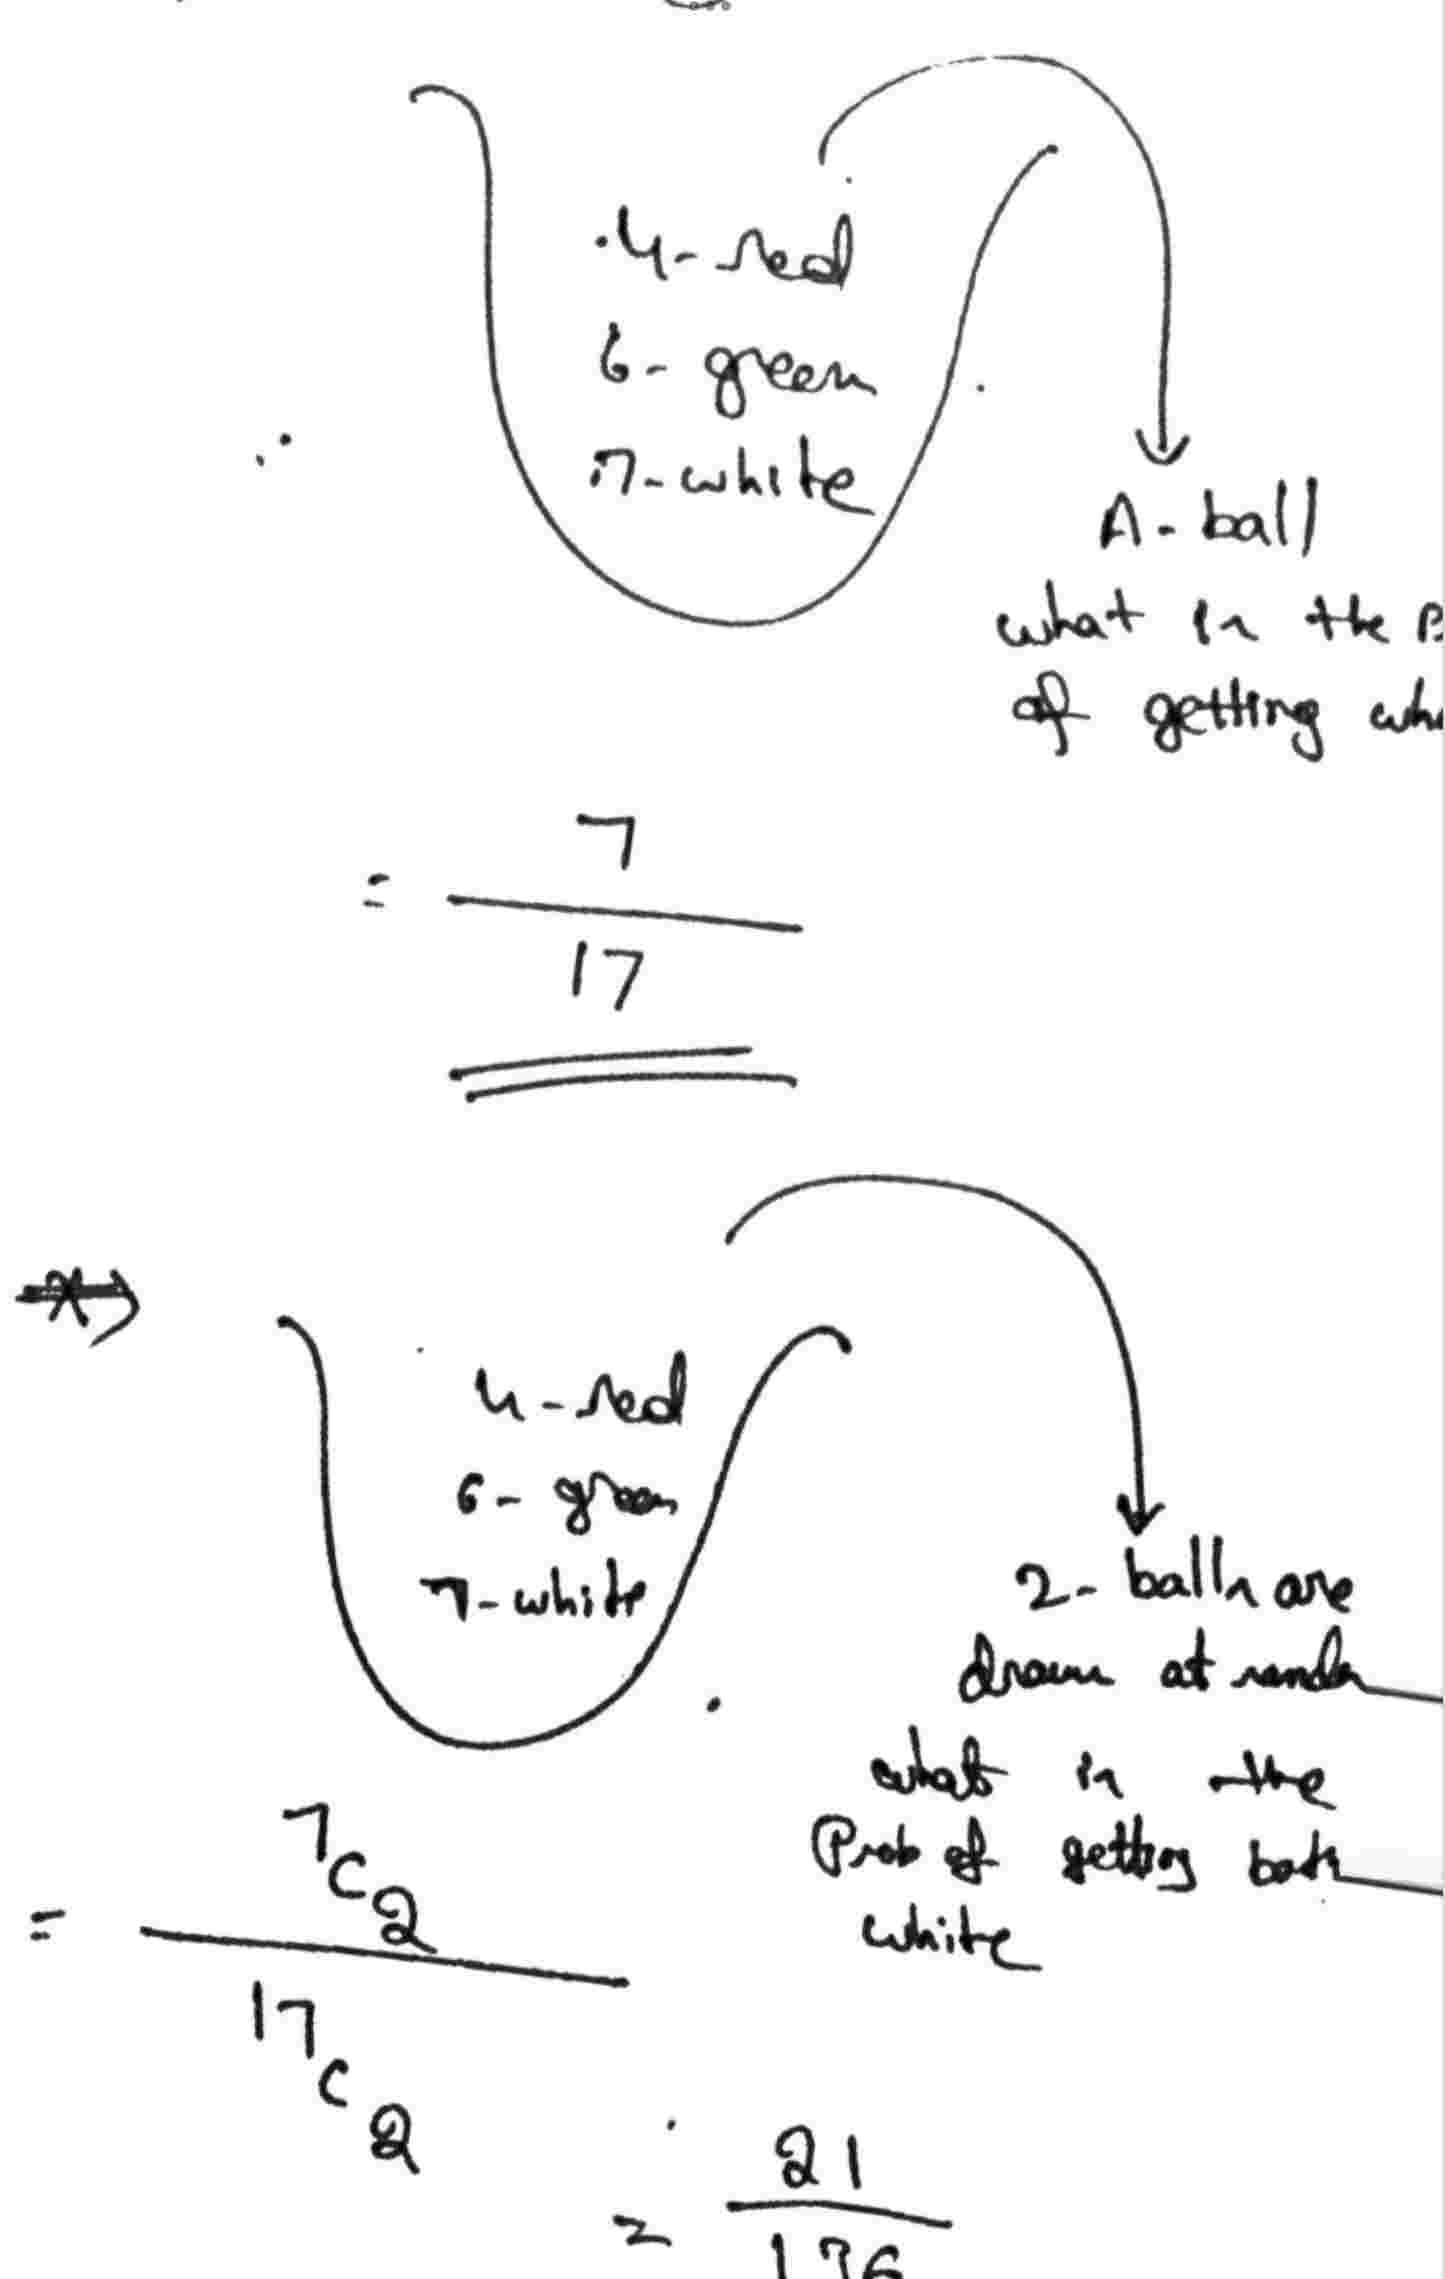 4-red
6- green
7-white
A-ball
what is the P
of getting whi
= 7
17
4-red
6- green
7-white
2- balls are
drawn at random
what is the
Prob of getting both
white
= 7c2
17c2
= 21
136